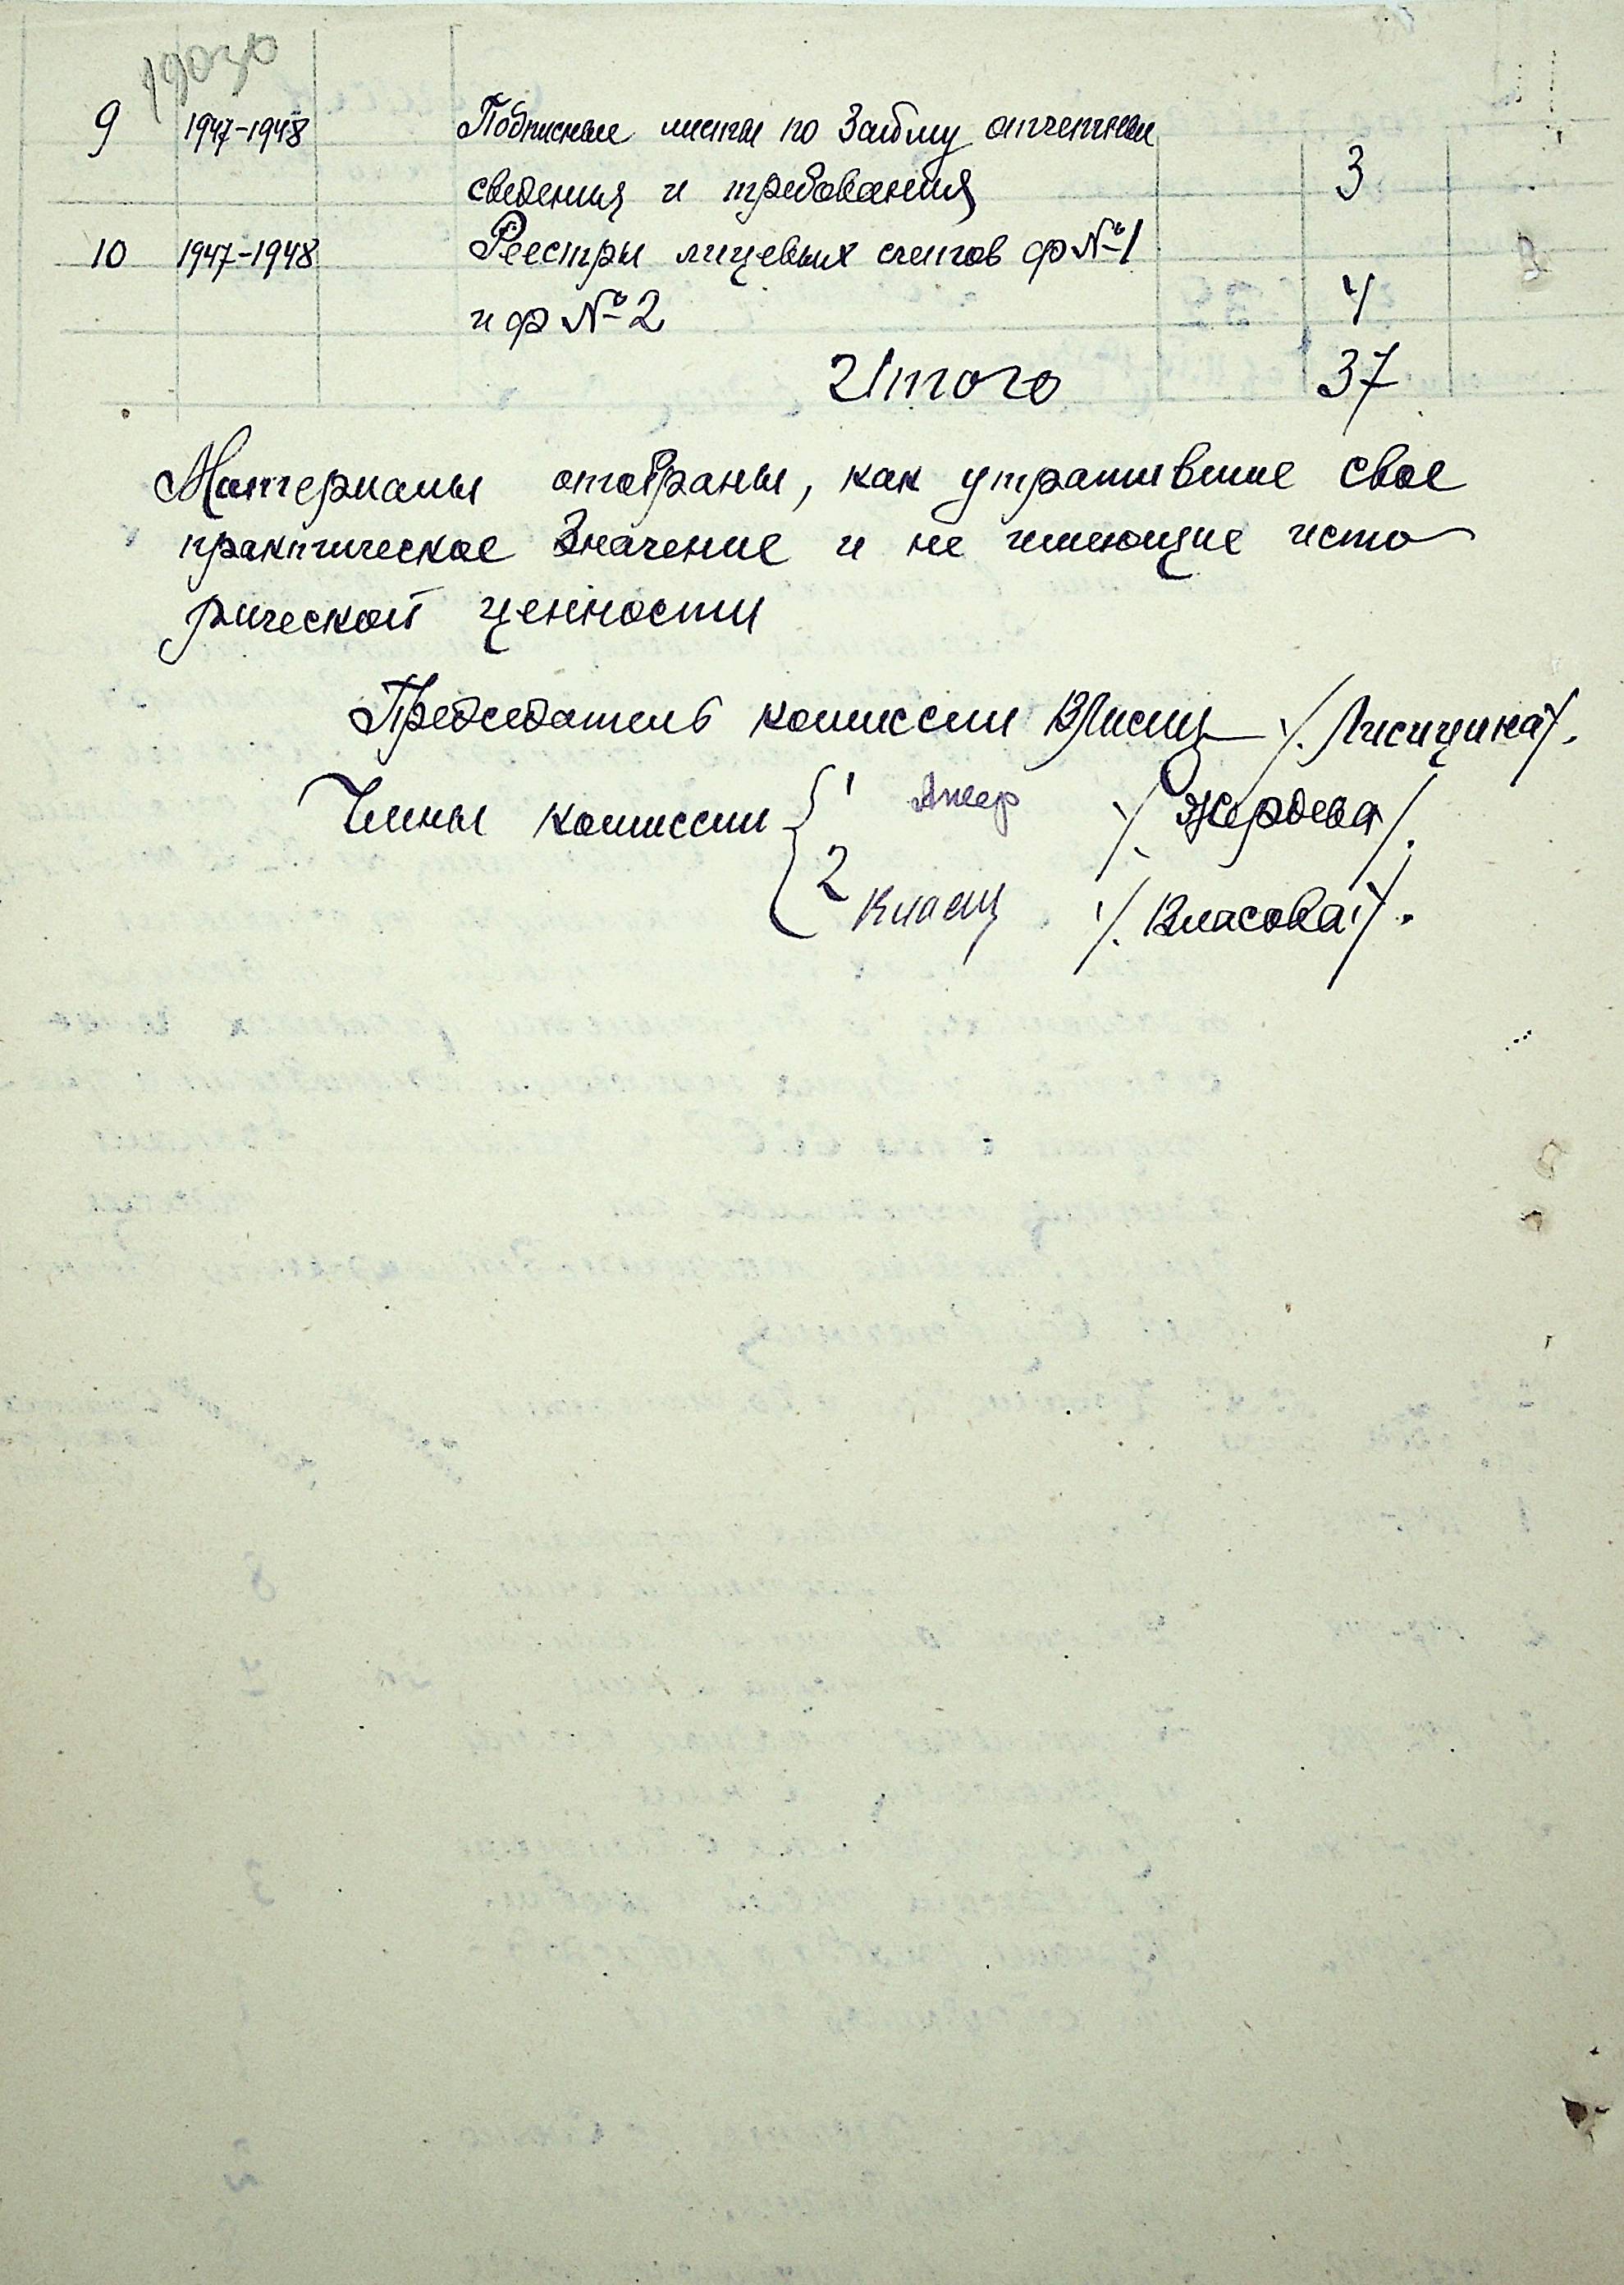 9 1947-1948 Подписные листы по Займу отчетные
сведения и требования 3
10 1947-1948 Реестры лицевых счетов ф №1
и ф №2 4
Итого 37
Материалы отобраны, как утратившие свое
практическое значение и не имеющие исто
рической ценности
Председатель комиссии ВЛисиц /. Лисицина/.
Члены комиссии 1 /. Жердева/.
2 Власиц /. Власова/.